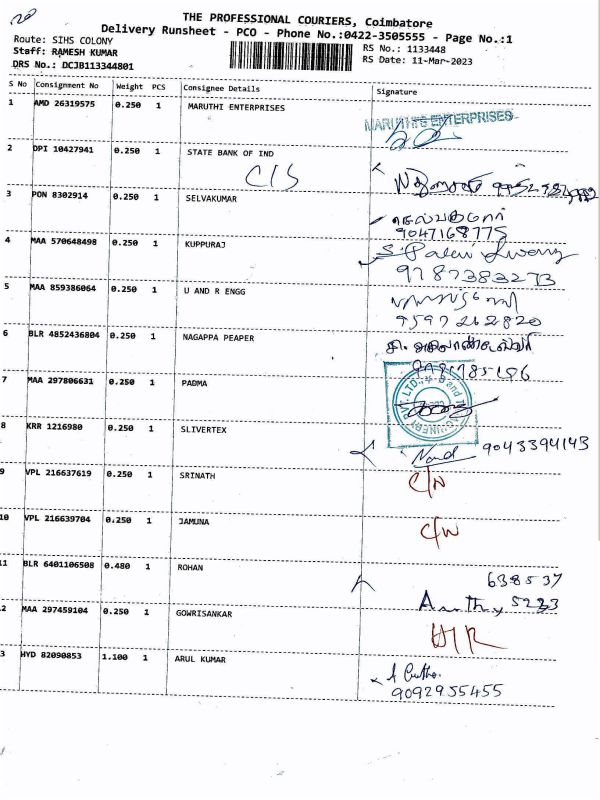 20
THE PROFESSIONAL COURIERS, Coimbatore
Delivery Runsheet - PCO - Phone No.:0422-3505555 - Page No.:1
Route: SIHS COLONY
RS No.: 1133448
Staff: RAMESH KUMAR
RS Date: 11-Mar-2023
DRS No.: DCJB113344801
S No Consignment No Weight PCS Consignee Details Signature
1 AMD 26319575 0.250 1 MARUTHI ENTERPRISES
MARUTHI ENTERPRISES
2 DPI 10427941 0.250 1 STATE BANK OF IND
C/S
3 PON 8302914 0.250 1 SELVAKUMAR
செல்வகுமார்
9047168775
4 MAA 570648498 0.250 1 KUPPURAJ
9787383273
5 MAA 859386064 0.250 1 U AND R ENGG
9597262820
6 BLR 4852436804 0.250 1 NAGAPPA PEAPER
7 MAA 297806631 0.250 1 PADMA
8 KRR 1216980 0.250 1 SLIVERTEX
Nand 9043394143
9 VPL 216637619 0.250 1 SRINATH
C/N
10 VPL 216639704 0.250 1 JAMUNA
C/N
11 BLR 6401106508 0.480 1 ROHAN
638537
5233
2 MAA 297459104 0.250 1 GOWRISANKAR
3 HYD 82090853 1.100 1 ARUL KUMAR
9092955455